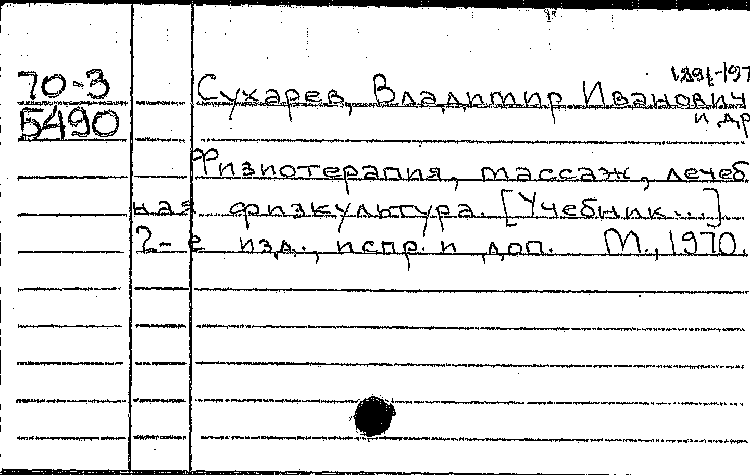 70-3
5490
1891-197
Сухарев, Владимир Иванович
и др
Физиотерапия, массаж, лечеб
ная физкультура. [Учебник...]
2-е изд., испр. и доп. М., 1970.